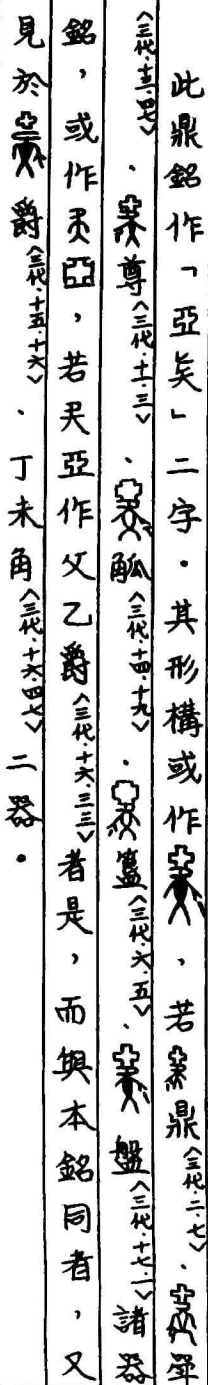 此鼎銘作「亞矣」二字．其形構或作，若鼎〈三代．二．七〉．斝
〈三代．十三．四七〉、尊〈三代．十一．三〉、觚〈三代．十四．十九〉．簋〈三代．六．五〉、盤〈三代．十七．一〉諸器
銘，或作矣亞，若矣亞作父乙爵〈三代．十六．三三〉者是，而與本銘同者，又
見於爵〈三代．十五．十六〉、丁未角〈三代．十六．四七〉二器．